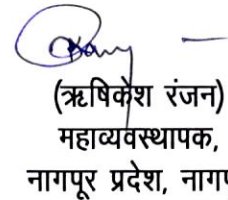 (ऋषिकेश रंजन)
महाव्यवस्थापक,
नागपूर प्रदेश,